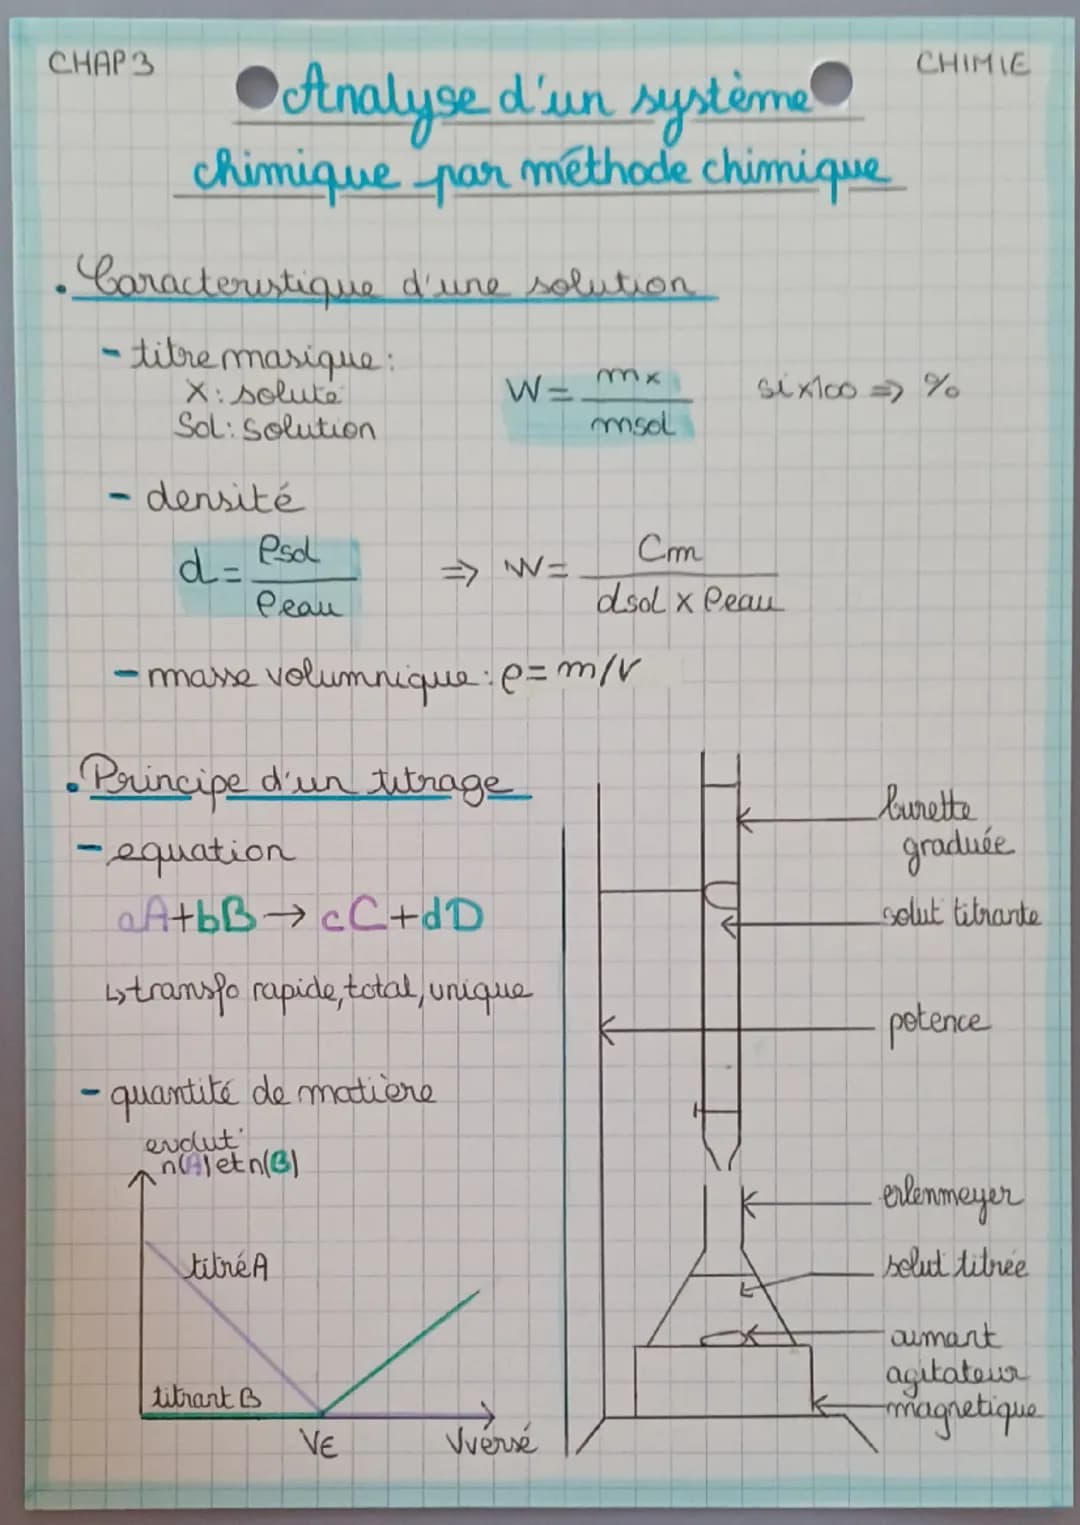 CHAP 3
CHIMIE
Analyse d'un système
chimique par méthode chimique
• Caracteristique d'une solution
- titre masique:
X: soluté
Sol: solution
W = mx / msol
six100 => %
- densité
d = ρsol / ρeau
=> W = Cm / dsol x ρeau
- masse volumnique: ρ = m/V
• Principe d'un titrage
- equation
aA + bB → cC + dD
↳ transfo rapide, total, unique
- quantité de matière
evolut°
n(A) et n(B)
titré A
titrant B
VE
Vversé
burette
graduée
solut° titrante
potence
erlenmeyer
solut° titrée
aimant
agitateur
magnetique